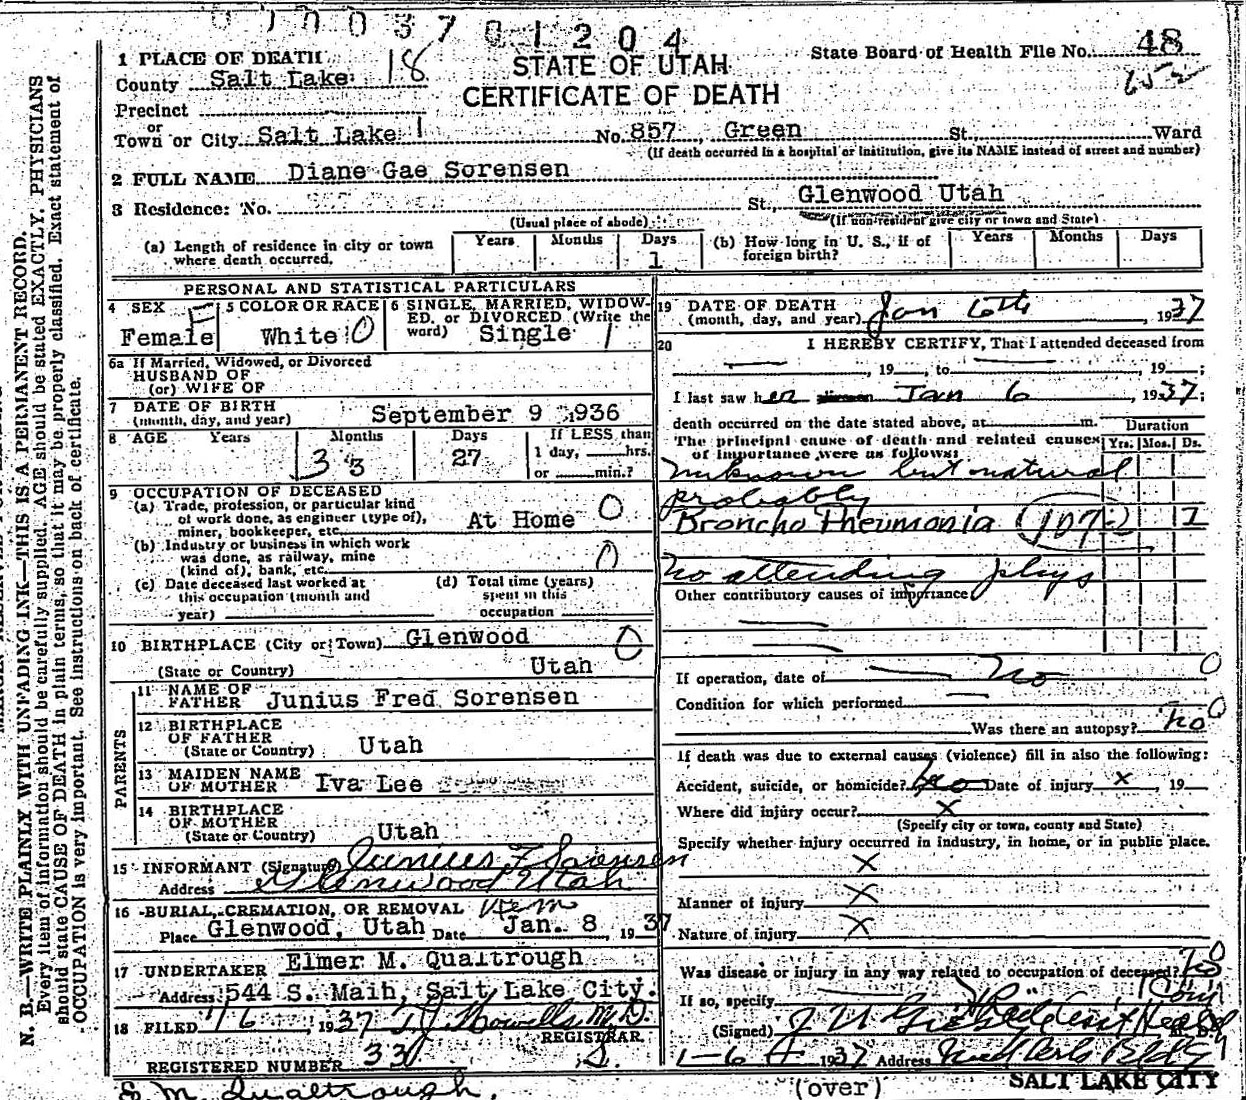 1204
1 PLACE OF DEATH
County Salt Lake 18
STATE OF UTAH
State Board of Health File No. 48
CERTIFICATE OF DEATH
Precinct
or
Town or City Salt Lake 1 No. 857 Green St. Ward
(If death occurred in a hospital or institution, give its NAME instead of street and number)
2 FULL NAME Diane Gae Sorensen
3 Residence: No. St., Glenwood Utah
(Usual place of abode) (If non-resident give city or town and State)
(a) Length of residence in city or town where death occurred. Years Months Days 1
(b) How long in U. S., if of foreign birth? Years Months Days
PERSONAL AND STATISTICAL PARTICULARS
4 SEX F Female
5 COLOR OR RACE White O
6 SINGLE, MARRIED, WIDOWED, or DIVORCED (Write the word) Single 1
6a If Married, Widowed, or Divorced
HUSBAND OF
(or) WIFE OF
7 DATE OF BIRTH
(month, day, and year) September 9 1936
8 AGE Years Months Days If LESS than
3 3 27 1 day, hrs.
or min.?
9 OCCUPATION OF DECEASED
(a) Trade, profession, or particular kind
of work done, as engineer (type of),
miner, bookkeeper, etc. At Home O
(b) Industry or business in which work
was done, as railway, mine
(kind of), bank, etc. O
(c) Date deceased last worked at
this occupation (month and
year)
(d) Total time (years)
spent in this
occupation
10 BIRTHPLACE (City or Town) Glenwood O
(State or Country) Utah
PARENTS
11 NAME OF FATHER Junius Fred Sorensen
12 BIRTHPLACE OF FATHER
(State or Country) Utah
13 MAIDEN NAME OF MOTHER Iva Lee
14 BIRTHPLACE OF MOTHER
(State or Country) Utah
15 INFORMANT (Signature) Junius F Sorensen
Address Glenwood Utah
16 BURIAL, CREMATION, OR REMOVAL Rem
Place Glenwood, Utah Date Jan. 8, 1937
17 UNDERTAKER Elmer M. Qualtrough
Address 544 S. Main, Salt Lake City.
18 FILED 1 6, 1937 T. J. Howells M.D.
REGISTRAR.
REGISTERED NUMBER 33 S.
19 DATE OF DEATH
(month, day, and year) Jan 6th, 1937
20 I HEREBY CERTIFY, That I attended deceased from
, 19 , to , 19 ;
I last saw her Jan 6, 1937;
death occurred on the date stated above, at m.
Duration
Yrs. Mos. Ds.
The principal cause of death and related causes
of importance were as follows:
unknown but natural
probably
Broncho Pneumonia 107 1
no attending phys
Other contributory causes of importance
If operation, date of No O
Condition for which performed
Was there an autopsy? no O
If death was due to external causes (violence) fill in also the following:
Accident, suicide, or homicide? no Date of injury x, 19
Where did injury occur? x
(Specify city or town, county and State)
Specify whether injury occurred in industry, in home, or in public place.
x
Manner of injury x
Nature of injury x
Was disease or injury in any way related to occupation of deceased? no O
If so, specify
(Signed)
1-6 1937 Address
SALT LAKE CITY
(over)
E. M. Qualtrough.
N. B.—WRITE PLAINLY WITH UNFADING INK—THIS IS A PERMANENT RECORD.
Every item of information should be carefully supplied. AGE should be stated EXACTLY. PHYSICIANS
should state CAUSE OF DEATH in plain terms, so that it may be properly classified. Exact statement of
OCCUPATION is very important. See instructions on back of certificate.